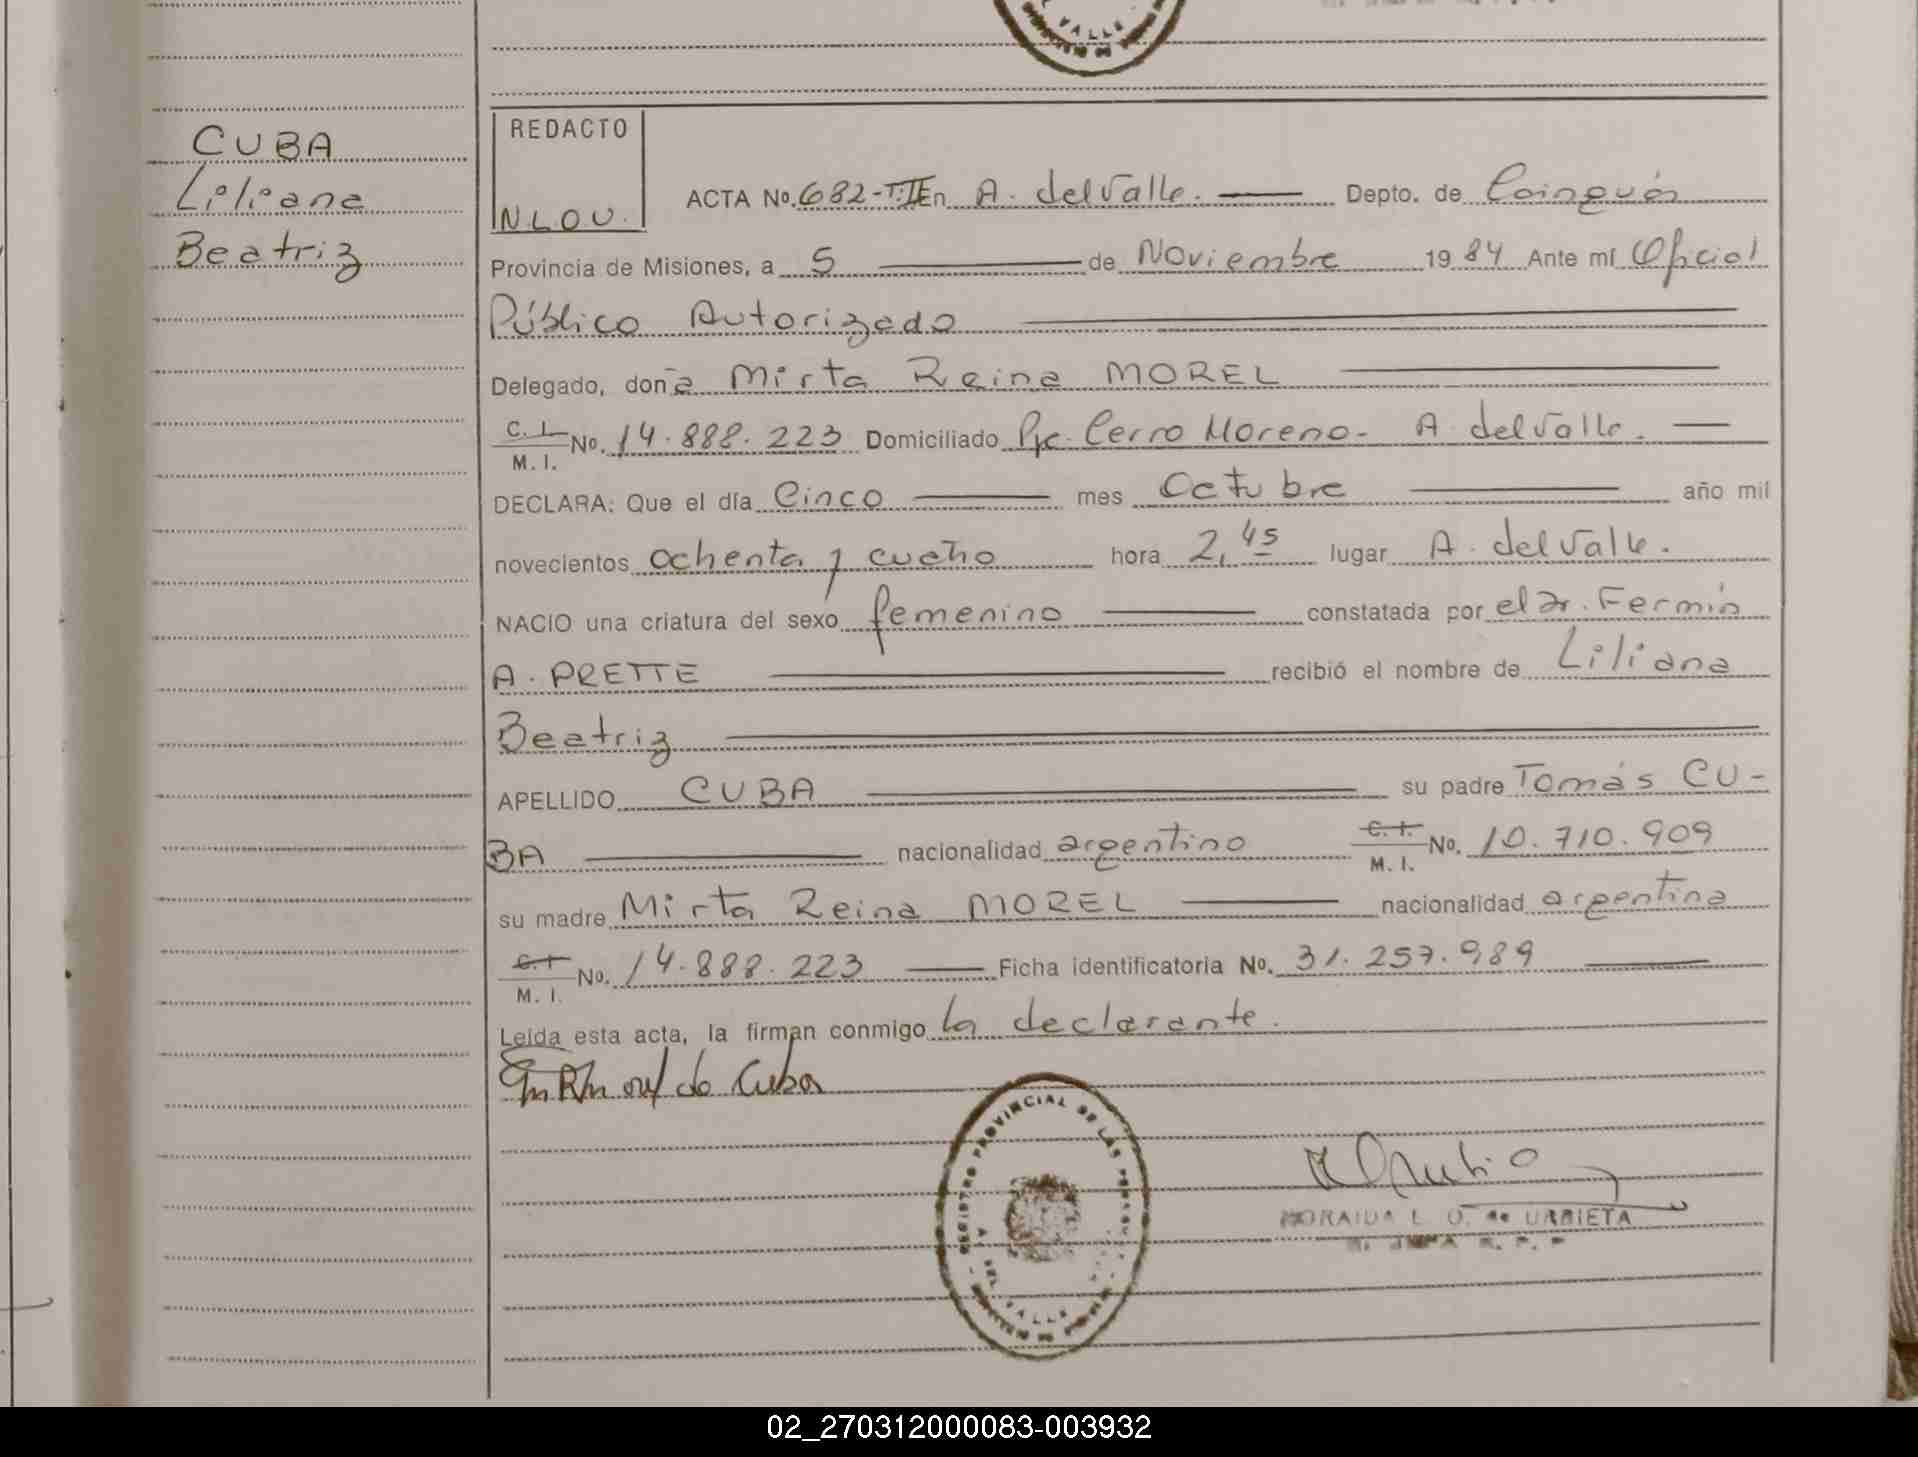 VALLE
CUBA
Liliana
Beatriz
REDACTO
N.L.O.U.
ACTA No. 682-T:II En A. del Valle. Depto. de Cainguás
Provincia de Misiones, a 5 de Noviembre 19 84 Ante mí Oficial
Público Autorizado
Delegado, don a Mirta Reina MOREL
C. I. M. I. No. 14.888.223 Domiciliado Pje. Cerro Moreno- A. del Valle.
DECLARA: Que el día Cinco mes Octubre año mil
novecientos ochenta y cuatro hora 2,45 lugar A. del Valle.
NACIO una criatura del sexo femenino constatada por el Dr. Fermín
A. PRETTE recibió el nombre de Liliana
Beatriz
APELLIDO CUBA su padre Tomás CU-
BA nacionalidad argentino C. I. M. I. No. 10.710.909
su madre Mirta Reina MOREL nacionalidad argentina
C. I. M. I. No. 14.888.223 Ficha identificatoria No. 31.257.989
Leída esta acta, la firman conmigo la declarante.
de Cuba
REGISTRO PROVINCIAL DE LAS PERSONAS
A. DEL VALLE
MORAIDA L. O. de URBIETA
02_270312000083-003932